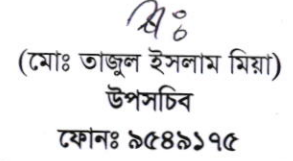 (মোঃ তাজুল ইসলাম মিয়া)
উপসচিব
ফোনঃ ৯৫৪৯১৭৫